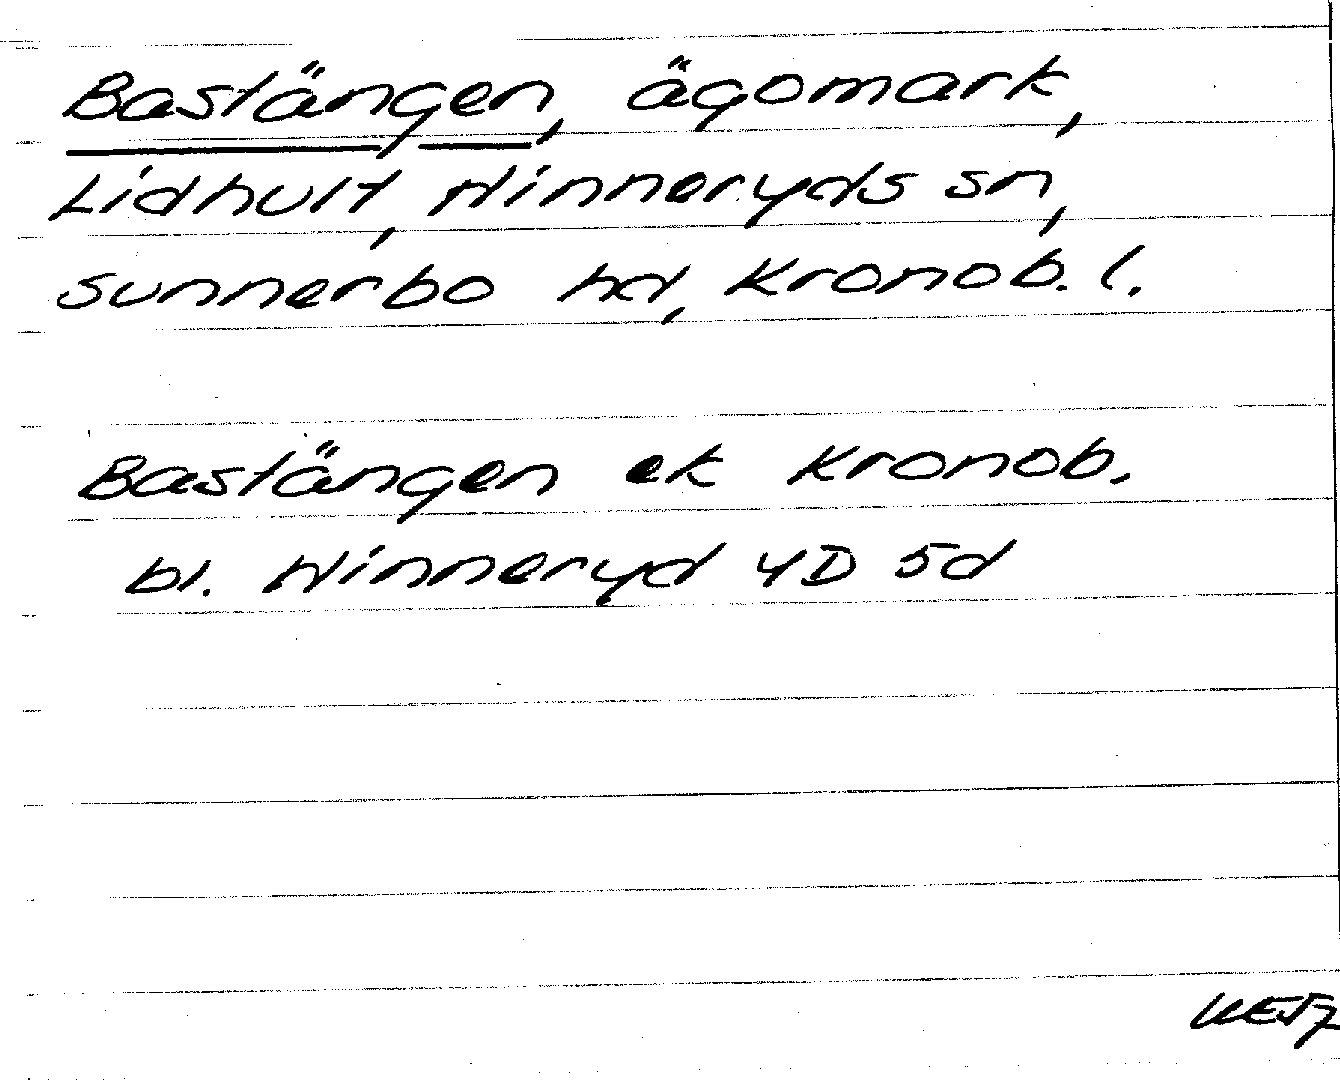 Bastängen, ägomark,
Lidhult, Hinneryds sn,
Sunnerbo hd, Kronob. l.
Bastängen ek Kronob.
bl. Hinneryd 4D 5d